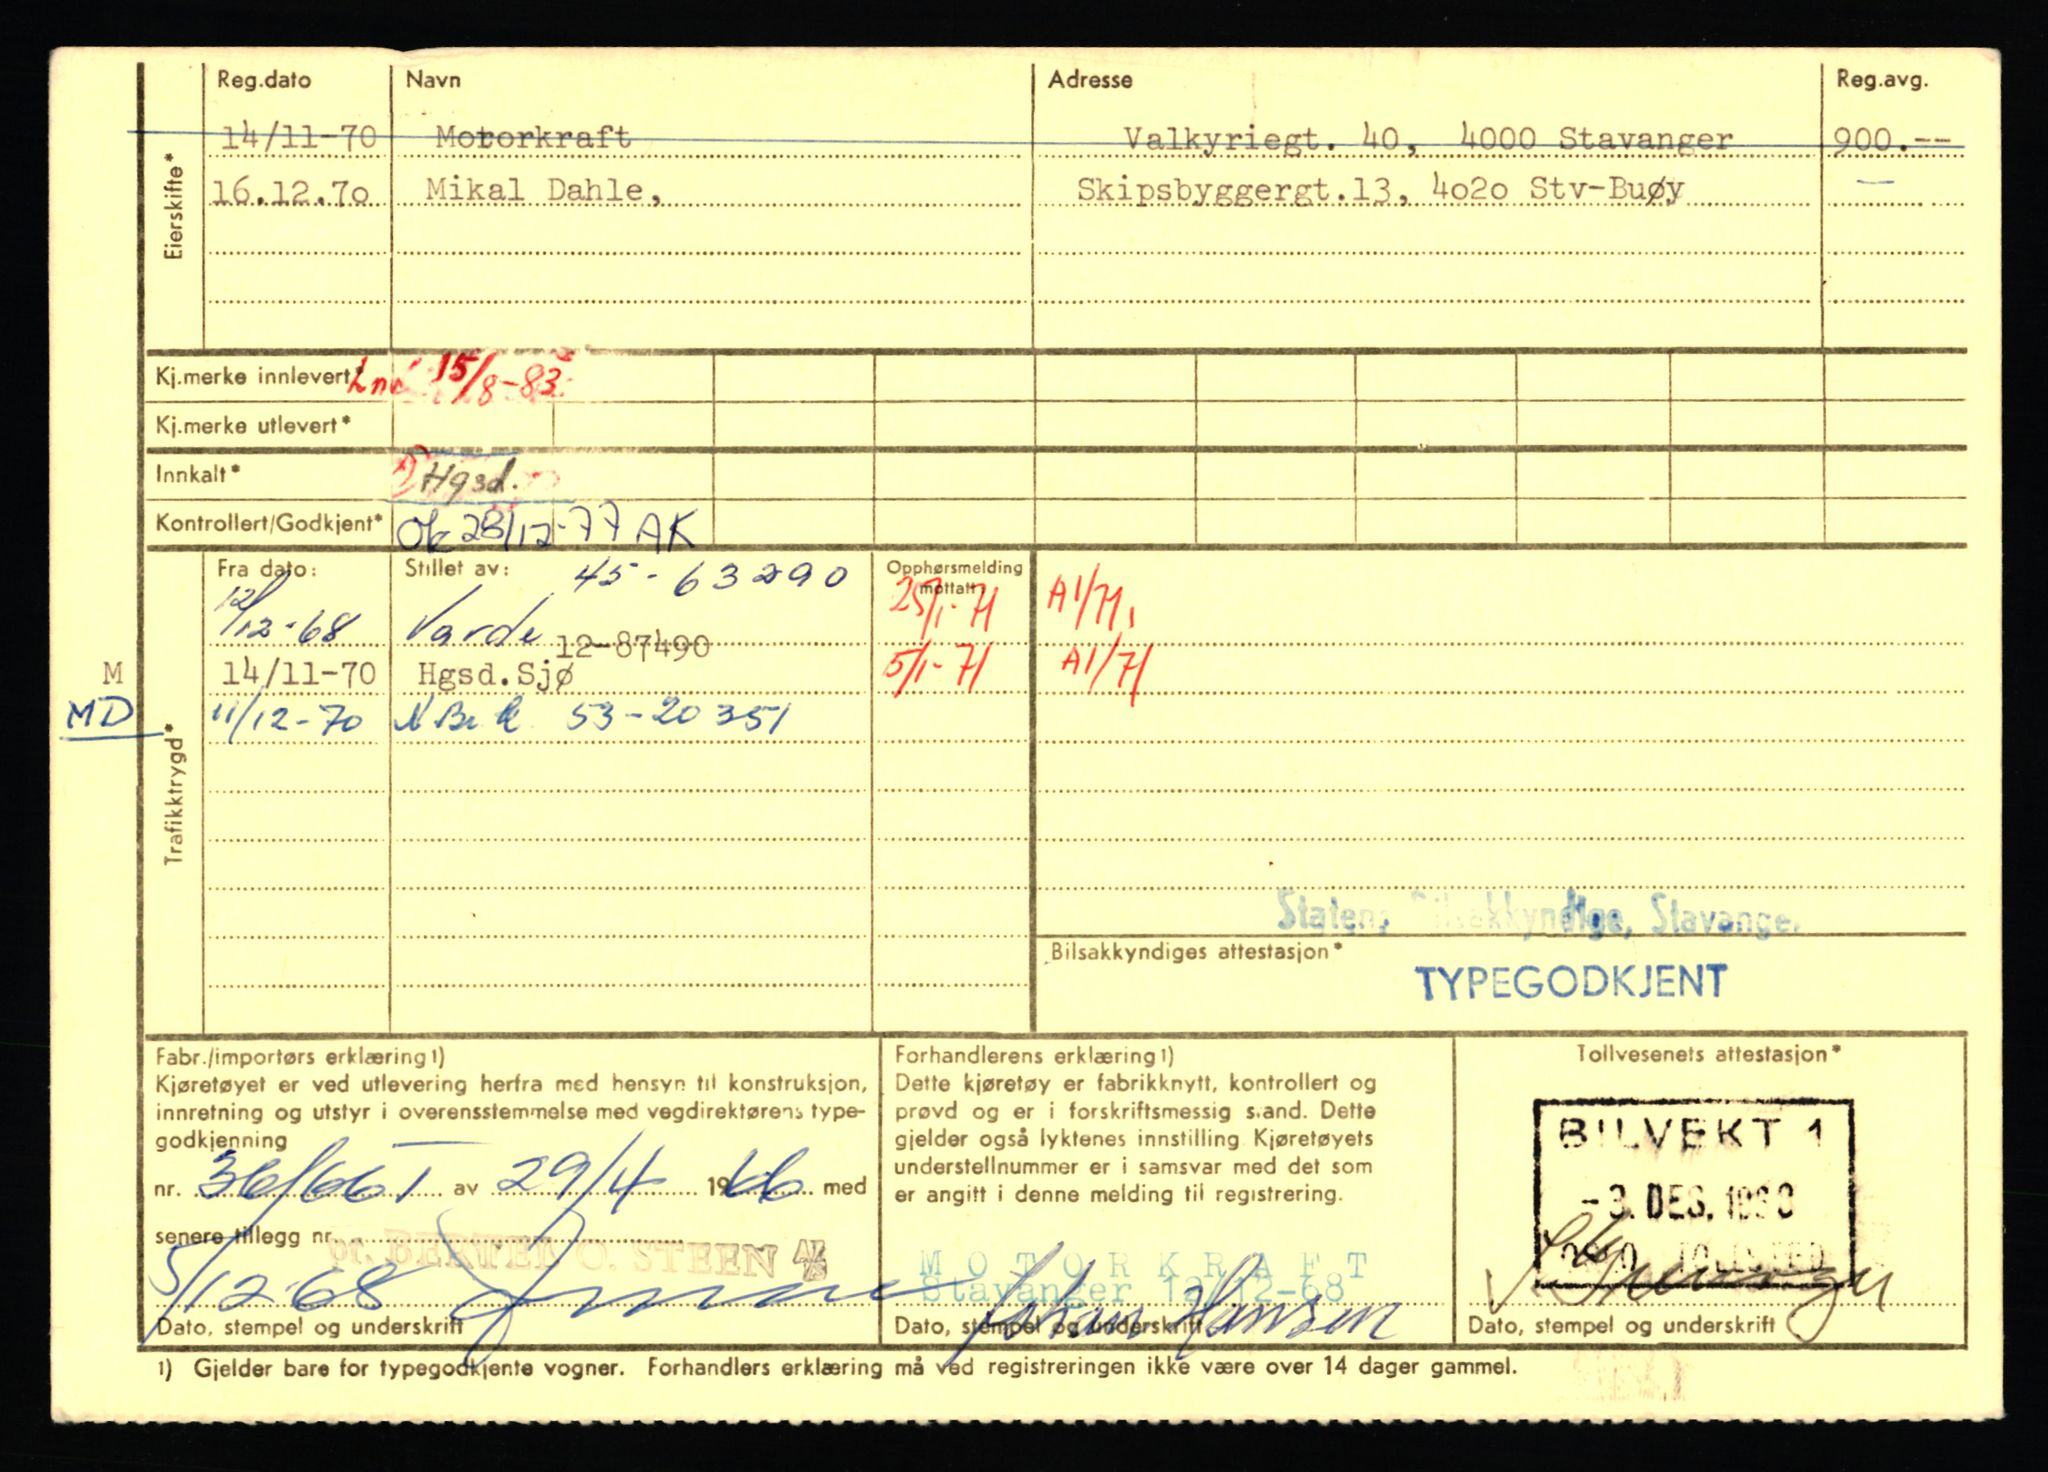 Reg.dato Navn Adresse Reg.avg.
14/11-70 Motorkraft Valkyriegt. 40, 4000 Stavanger 900.--
16.12.7o Mikal Dahle, Skipsbyggergt.13, 4o2o Stv-Buøy —
Eierskifte*
Kj.merke innlevert* 15/8-83
Kj.merke utlevert*
Innkalt* Hgsd.
Kontrollert/Godkjent* Ok 28/12-77 AK
Fra dato: Stillet av: 45-63290 Opphørsmelding mottatt
12/12-68 Varde 25/1-71 A1/71,
12-87490
M 14/11-70 Hgsd.Sjø 5/1-71 A1/71
MD 11/12-70 53-20351
Trafikktrygd*
Statens Bilsakkyndige, Stavanger
Bilsakkyndiges attestasjon*
TYPEGODKJENT
Fabr./importørs erklæring 1)
Kjøretøyet er ved utlevering herfra med hensyn til konstruksjon,
innretning og utstyr i overensstemmelse med vegdirektørens type-
godkjenning
nr. 36/66 I av 29/4 1966 med
senere tillegg nr.
pr. BERTEL O. STEEN A/S
5/12-68
Dato, stempel og underskrift
Forhandlerens erklæring 1)
Dette kjøretøy er fabrikknytt, kontrollert og
prøvd og er i forskriftsmessig stand. Dette
gjelder også lyktenes innstilling Kjøretøyets
understellnummer er i samsvar med det som
er angitt i denne melding til registrering.
MOTORKRAFT
Stavanger 12/12-68
Johan Hansen
Dato, stempel og underskrift
Tollvesenets attestasjon*
BILVEKT 1
-3. DES. 1968
Dato, stempel og underskrift
1) Gjelder bare for typegodkjente vogner. Forhandlers erklæring må ved registreringen ikke være over 14 dager gammel.